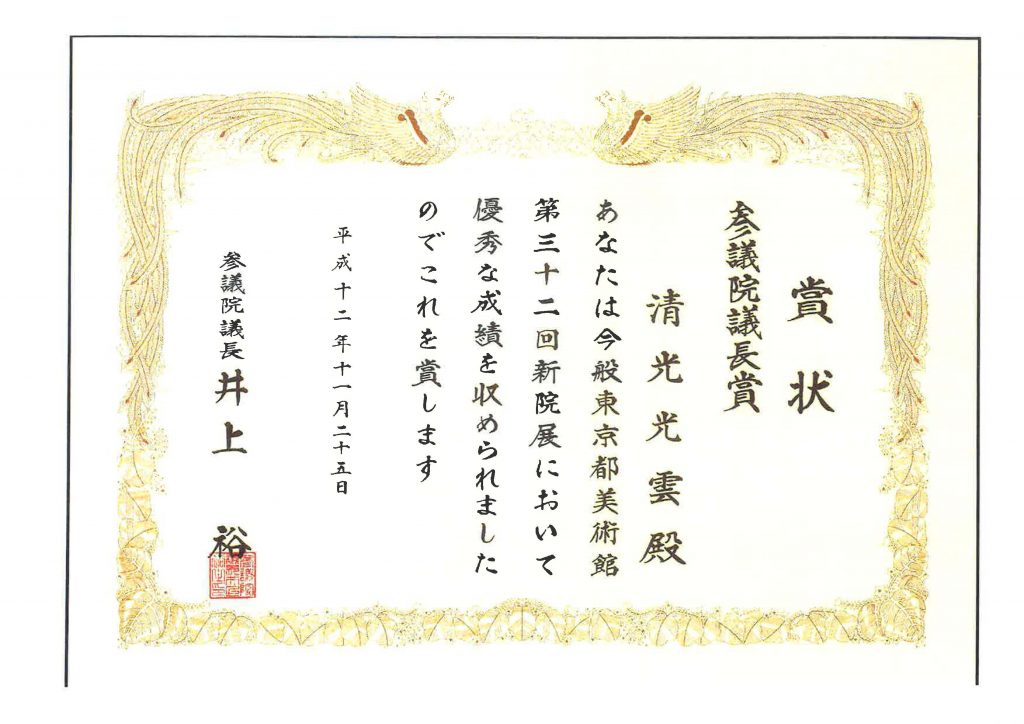 賞状
参議院議長賞
清光光雲殿
あなたは今般東京都美術館
第三十二回新院展において
優秀な成績を収められました
のでこれを賞します
平成十二年十一月二十五日
参議院議長 井上 裕